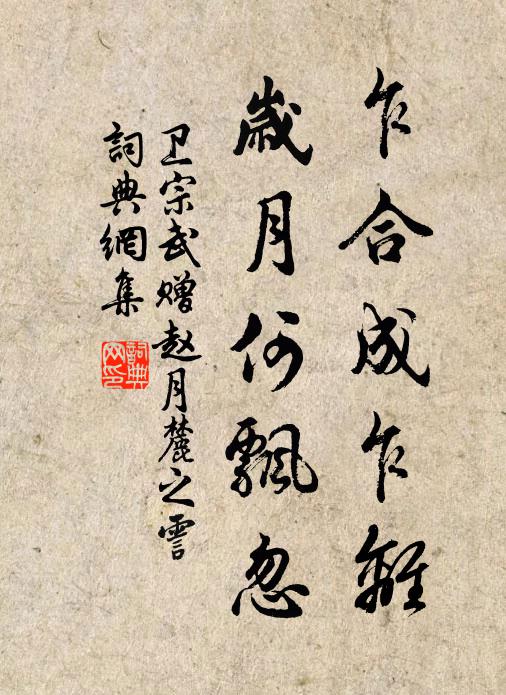 乍合成乍離
歲月何飄忽
卫宗武赠赵月麓之霅
詞典網集
詞典網印